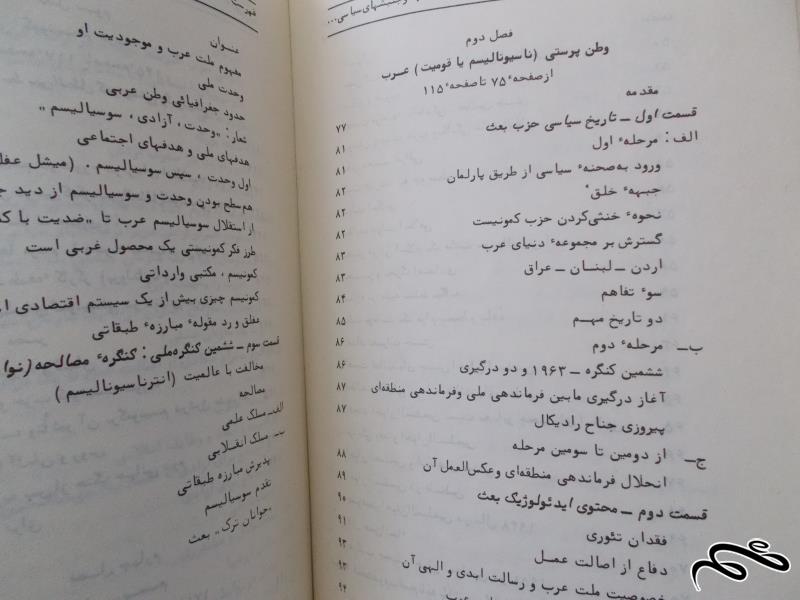 وجنبشهای سیاسی...
فصل دوم
وطن پرستی (ناسیونالیسم یا قومیت) عرب
ازصفحهٔ ۷۵ تا صفحهٔ ۱۱۵
مقدمه
قسمت اول ــ تاریخ سیاسی حزب بعث ۷۷
الف: مرحلهٔ اول ۸۱
ورود به‌صحنهٔ سیاسی از طریق پارلمان ۸۱
جبههٔ خلق ۸۲
نحوهٔ خنثی‌کردن حزب کمونیست ۸۲
گسترش بر مجموعهٔ دنیای عرب ۸۲
اردن ــ لبنان ــ عراق ۸۳
سوءٔ تفاهم ۸۳
دو تاریخ مهم ۸۴
ب‌ــ مرحلهٔ دوم ۸۵
ششمین کنگره ــ ۱۹۶۳ و دو درگیری ۸۶
آغاز درگیری مابین فرماندهی ملی وفرماندهی منطقه‌ای ۸۶
پیروزی جناح رادیکال ۸۷
ج‌ــ از دومین تا سومین مرحله ۸۷
انحلال فرماندهی منطقه‌ای وعکس‌العمل آن ۸۸
قسمت دوم ــ محتوی ایدئولوژیک بعث ۸۹
فقدان تئوری ۹۰
دفاع از اصالت عمل ۹۱
خصوصیت ملت عرب و رسالت ابدی و الهی آن ۹۳
۹۳
۹۴
فهرست
عنوان
مفهوم ملت عرب و موجودیت او
وحدت ملی
حدود جغرافیائی وطن عربی
شعار: „وحدت ، آزادی ، سوسیالیسم„
هدفهای ملی و هدفهای اجتماعی
اول وحدت ، سپس سوسیالیسم . (میشل عفل
هم‌سطح بودن وحدت و سوسیالیسم از دید
از استقلال سوسیالیسم عرب تا „ضدیت با
طرز فکر کمونیستی یک محصول غربی است
کمونیسم ، مکتبی وارداتی
کمونیسم چیزی بیش از یک سیستم اقتصادی
عفلق و رد مقولهٔ مبارزهٔ طبقاتی
قسمت سوم ــ ششمین کنگره‌ملی: کنگرهٔ مصالحه (نوا
مخالفت با عالمیت (انترناسیونالیسم)
مصالحه
الف‌ــ مسلک علمی
ب‌ــ مسلک انقلابی
پذیرش مبارزه طبقاتی
تقدم سوسیالیسم
„جوانان ترک„ بعث